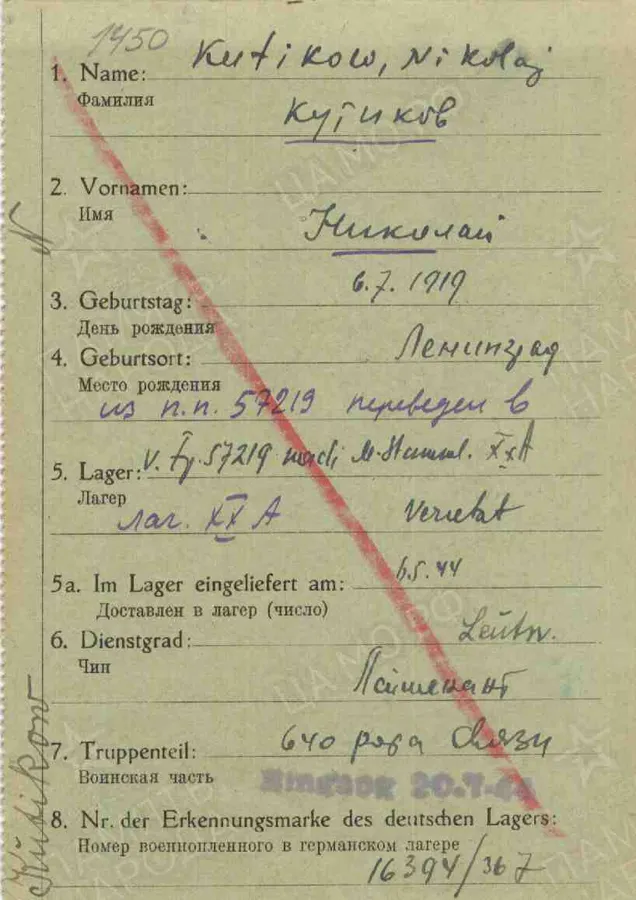 1450
1. Name: Kutikow, Nikolaj
Фамилия
Кутиков
2. Vornamen:
Имя
Николай
6.7.1919
3. Geburtstag:
День рождения
Ленинград
4. Geburtsort:
Место рождения
из п.п. 57219 переведен в
v. Fp. 57219 nach M.-Stamml. XXA
5. Lager:
Лагер
лаг. XX A
Versetzt
6.5.44
5a. Im Lager eingeliefert am:
Доставлен в лагер (число)
Leutn.
6. Dienstgrad:
Чин
Лейтенант
640 рота связи
7. Truppenteil:
Воинская часть
8. Nr. der Erkennungsmarke des deutschen Lagers:
Номер военнопленного в германском лагере
16394/367
Kutikow
N
ЦАМО РФ